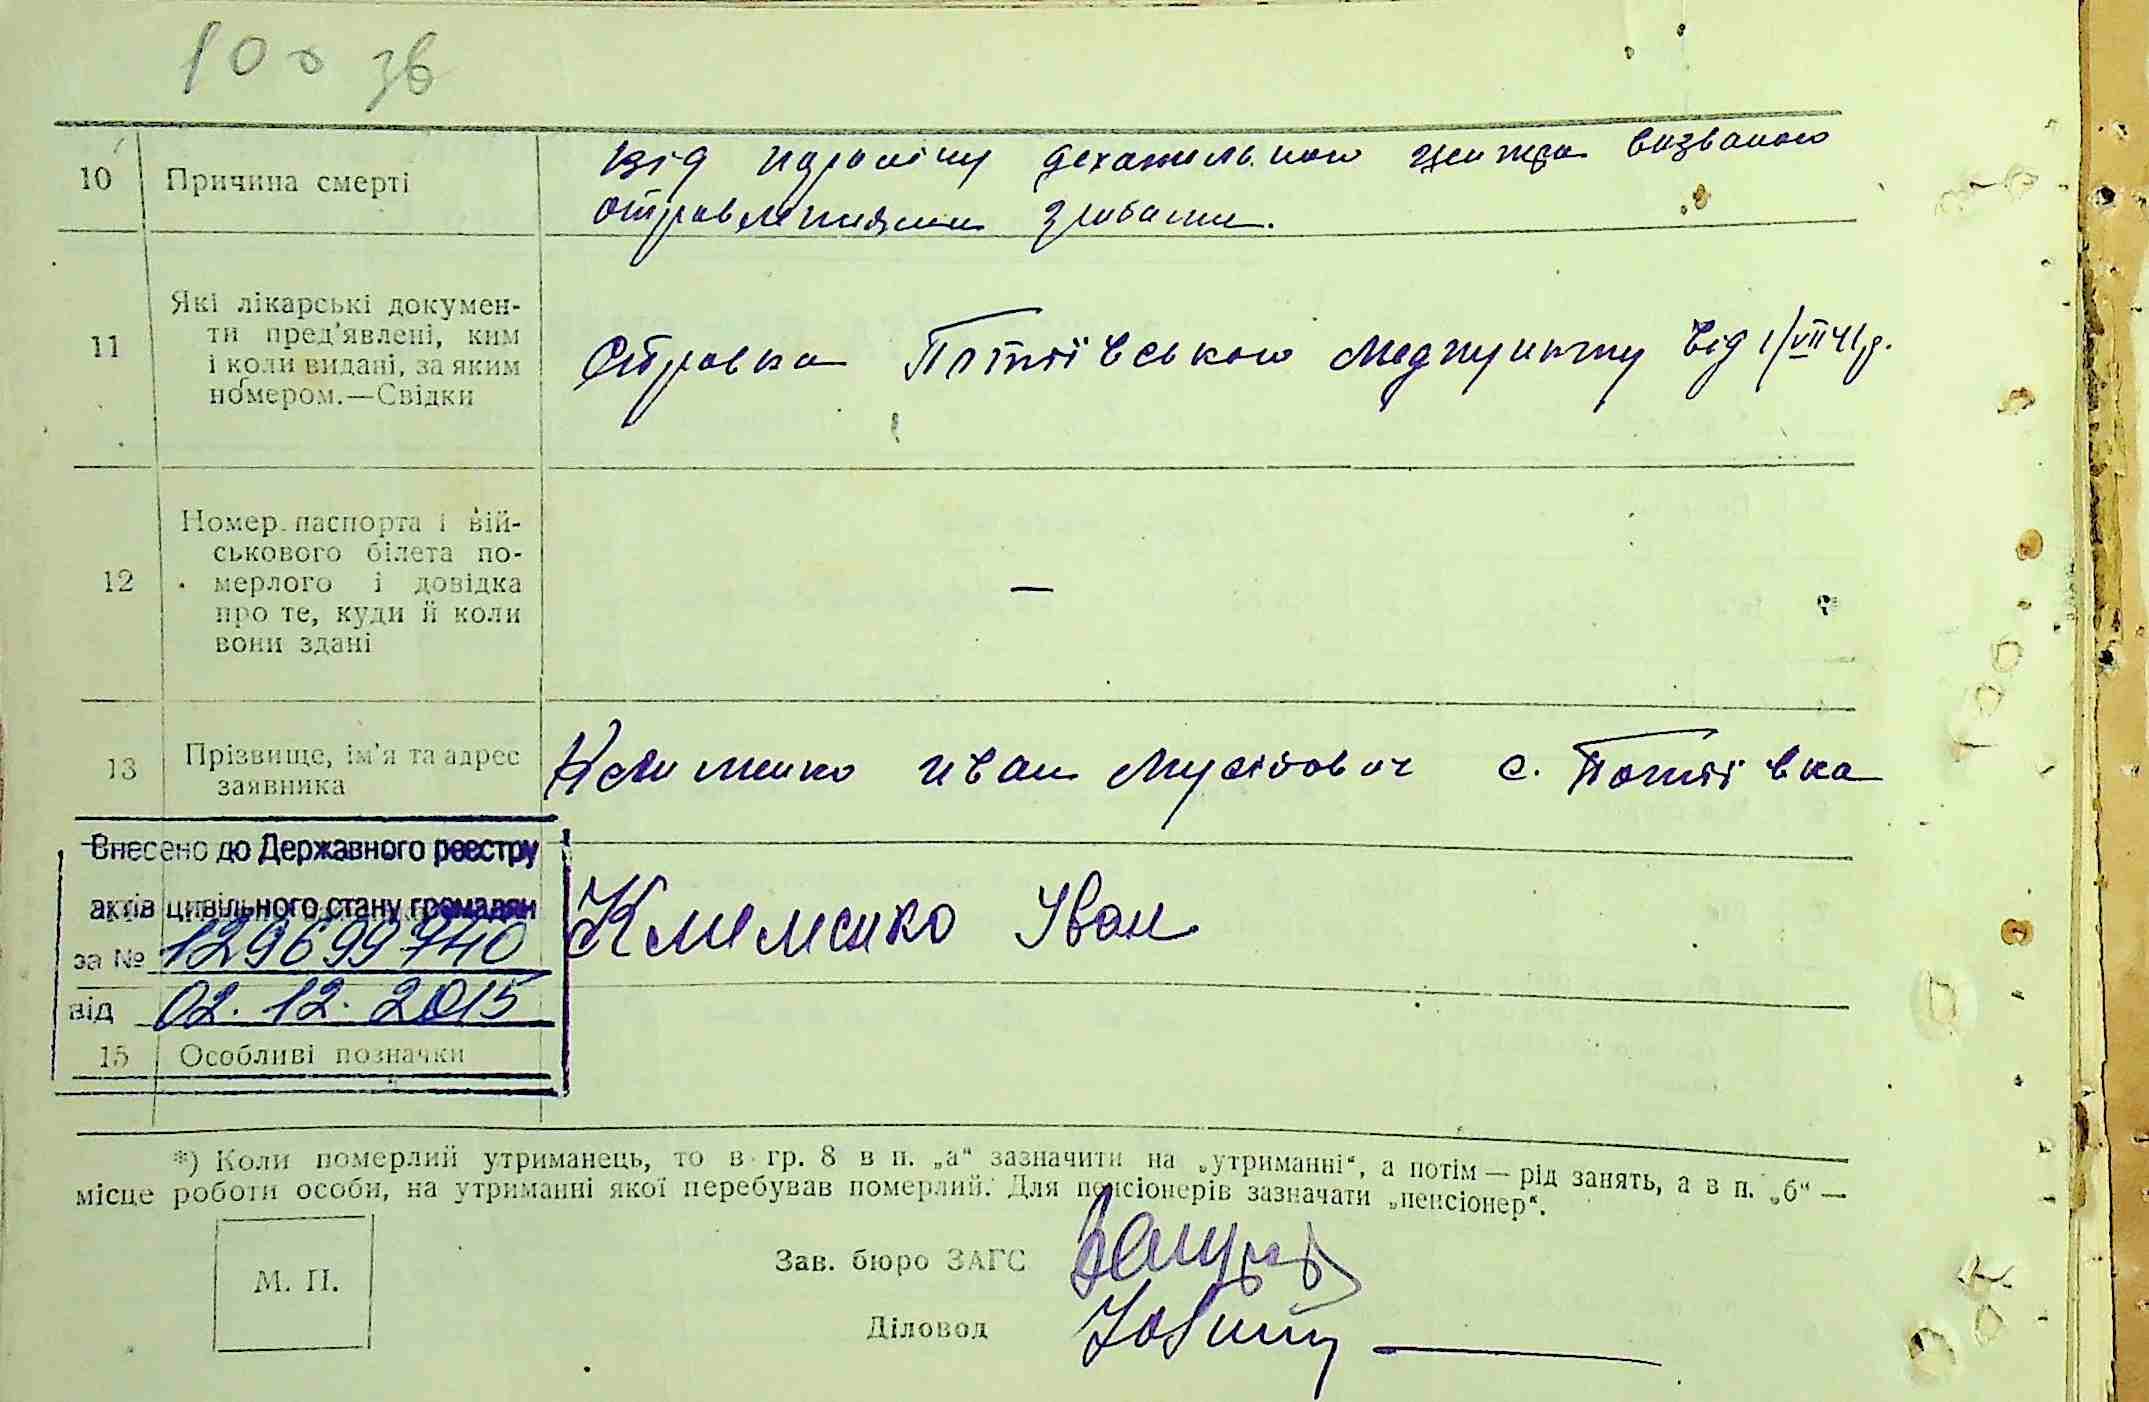 100 зв
10 Причина смерті
Від паралічу дехательного центра визваного
отравленнями грибами.
11 Які лікарські докумен-
ти пред'явлені, ким
і коли видані, за яким
номером.—Свідки
Справка Потіївського медпункту від 1/VII 41 р.
12 Номер паспорта і вій-
ськового білета по-
мерлого і довідка
про те, куди й коли
вони здані
—
13 Прізвище, ім'я та адрес
заявника
Клименко Иван Мусійович с. Потіївка
Внесено до Державного реєстру
актів цивільного стану громадян
за № 129699740
від 02.12.2015
Клименко Іван
15 Особливі позначки
*) Коли померлий утриманець, то в гр. 8 в п. „а“ зазначити на „утриманні“, а потім — рід занять, а в п. „б“ —
місце роботи особи, на утриманні якої перебував померлий. Для пенсіонерів зазначати „пенсіонер“.
М. П.
Зав. бюро ЗАГС
Діловод